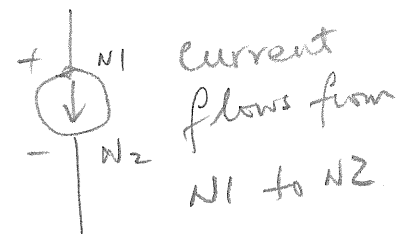 + N1
- N2
current
flows from
N1 to N2